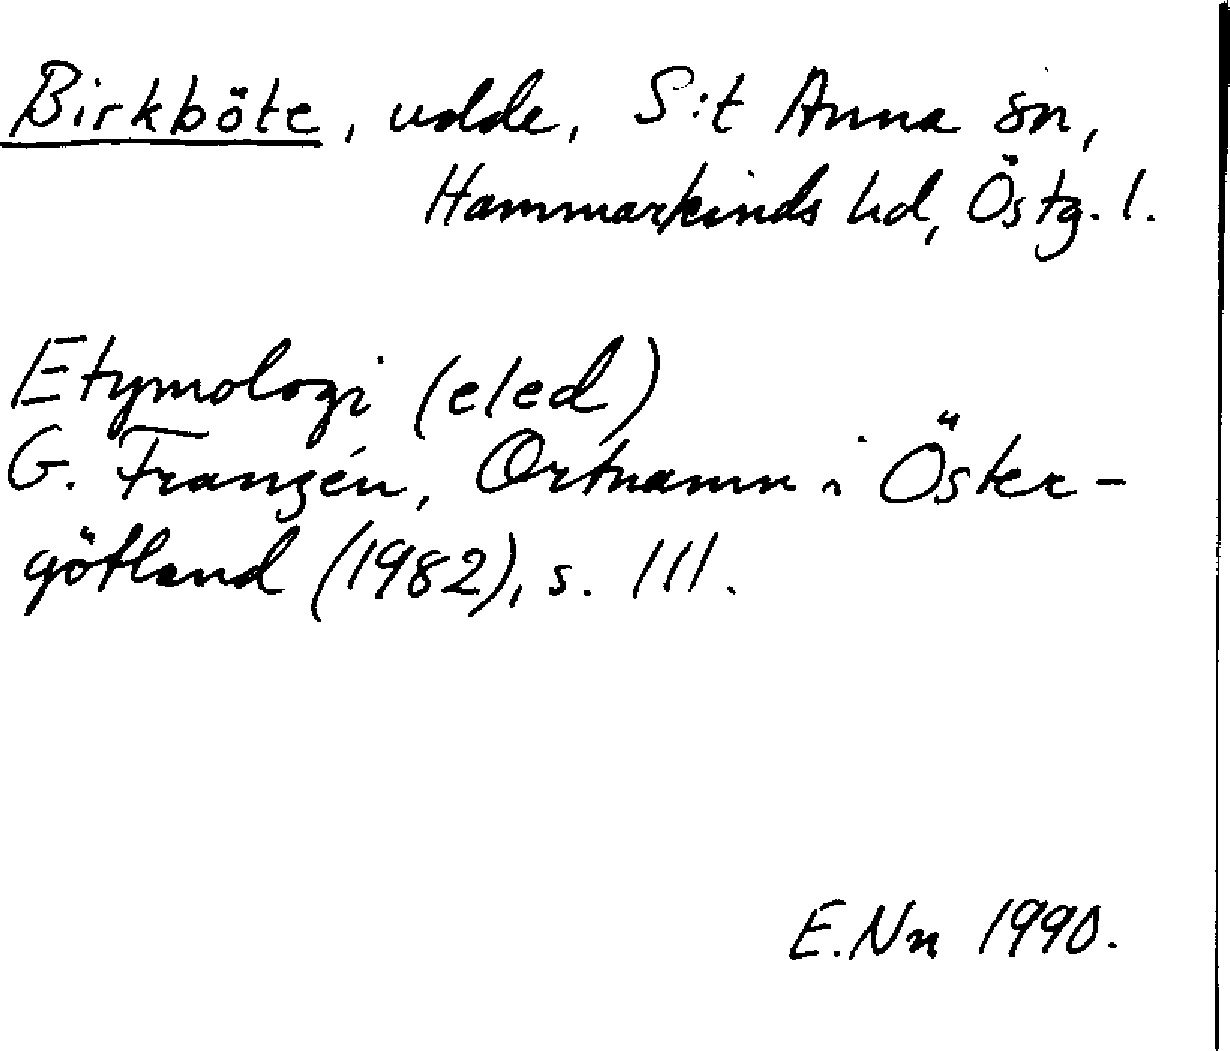 Birkböte, udde, S:t Anna sn,
Hammarkinds hd, Östg. l.
Etymologi (eled)
G. Franzén, Ortnamn i Öster-
götland (1982), s. 111.
E.Nn 1990.